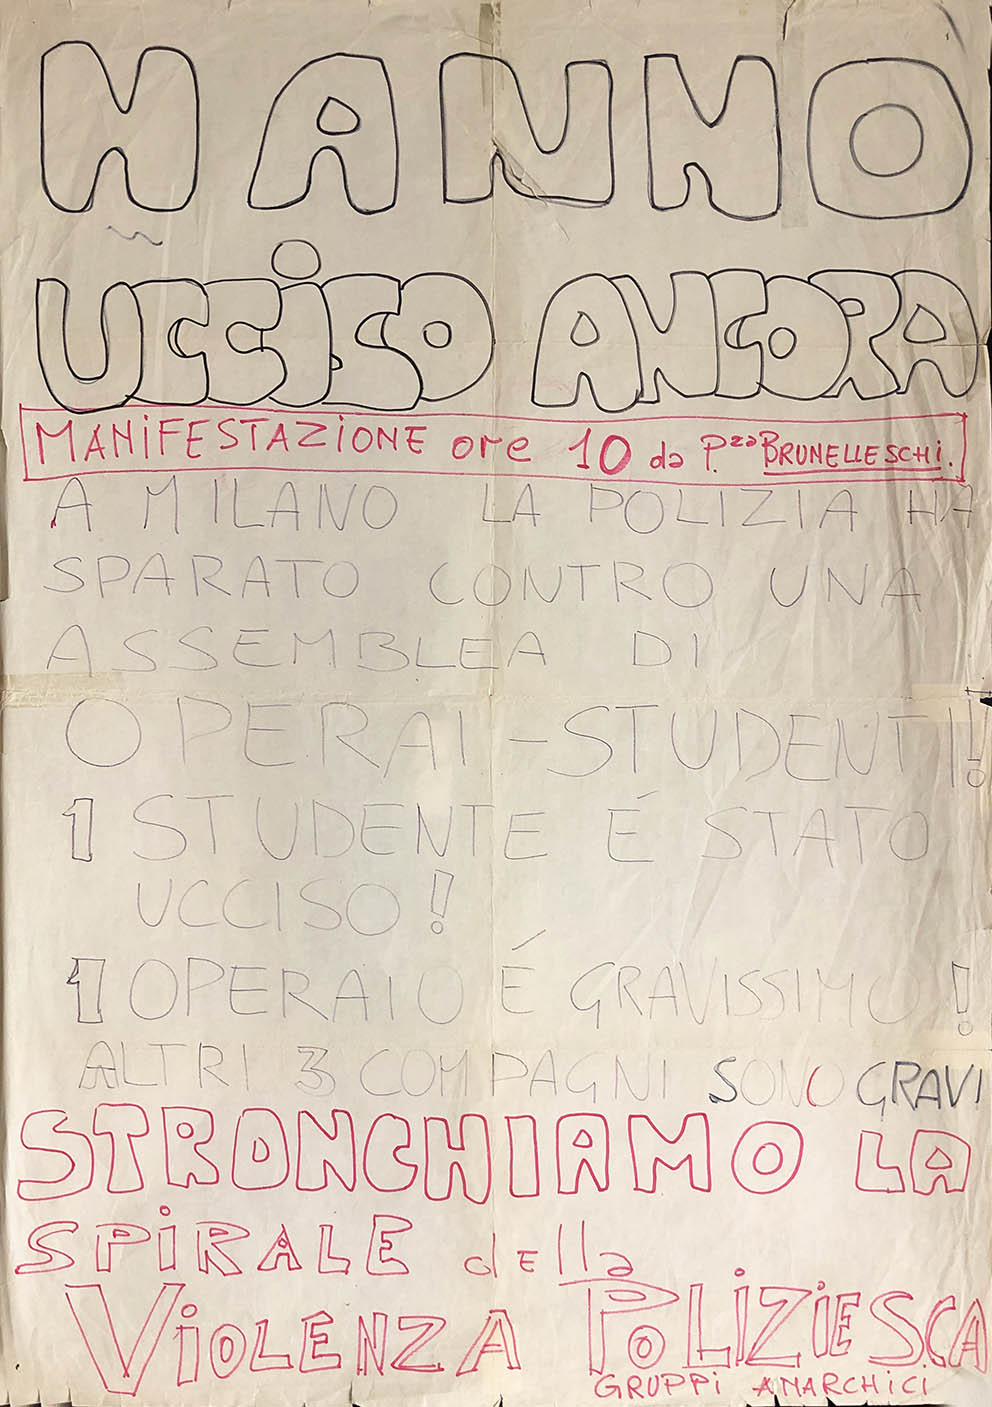 HANNO
UCCiSO ANCORA
MANiFESTAZiONE ore 10 da P.zza BRUNELLESCHi.
A MILANO LA POLIZIA HA
SPARATO CONTRO UNA
ASSEMBLEA DI
OPERAI-STUDENTI!
1 STUDENTE É STATO
UCCISO!
1 OPERAIO É GRAVISSIMO!
ALTRI 3 COMPAGNI SONO GRAVI
STRONCHIAMO LA
SPiRALE dElla
ViOLENZA POLiZiESCA
GRUPPi ANARCHiCi